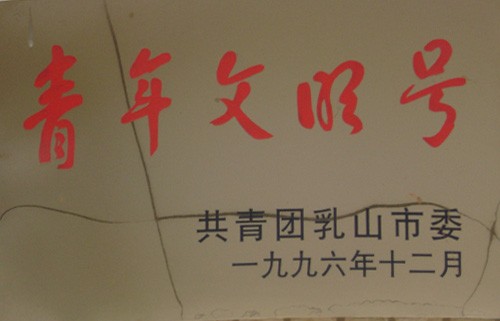 青年文明号
共青团乳山市委
一九九六年十二月